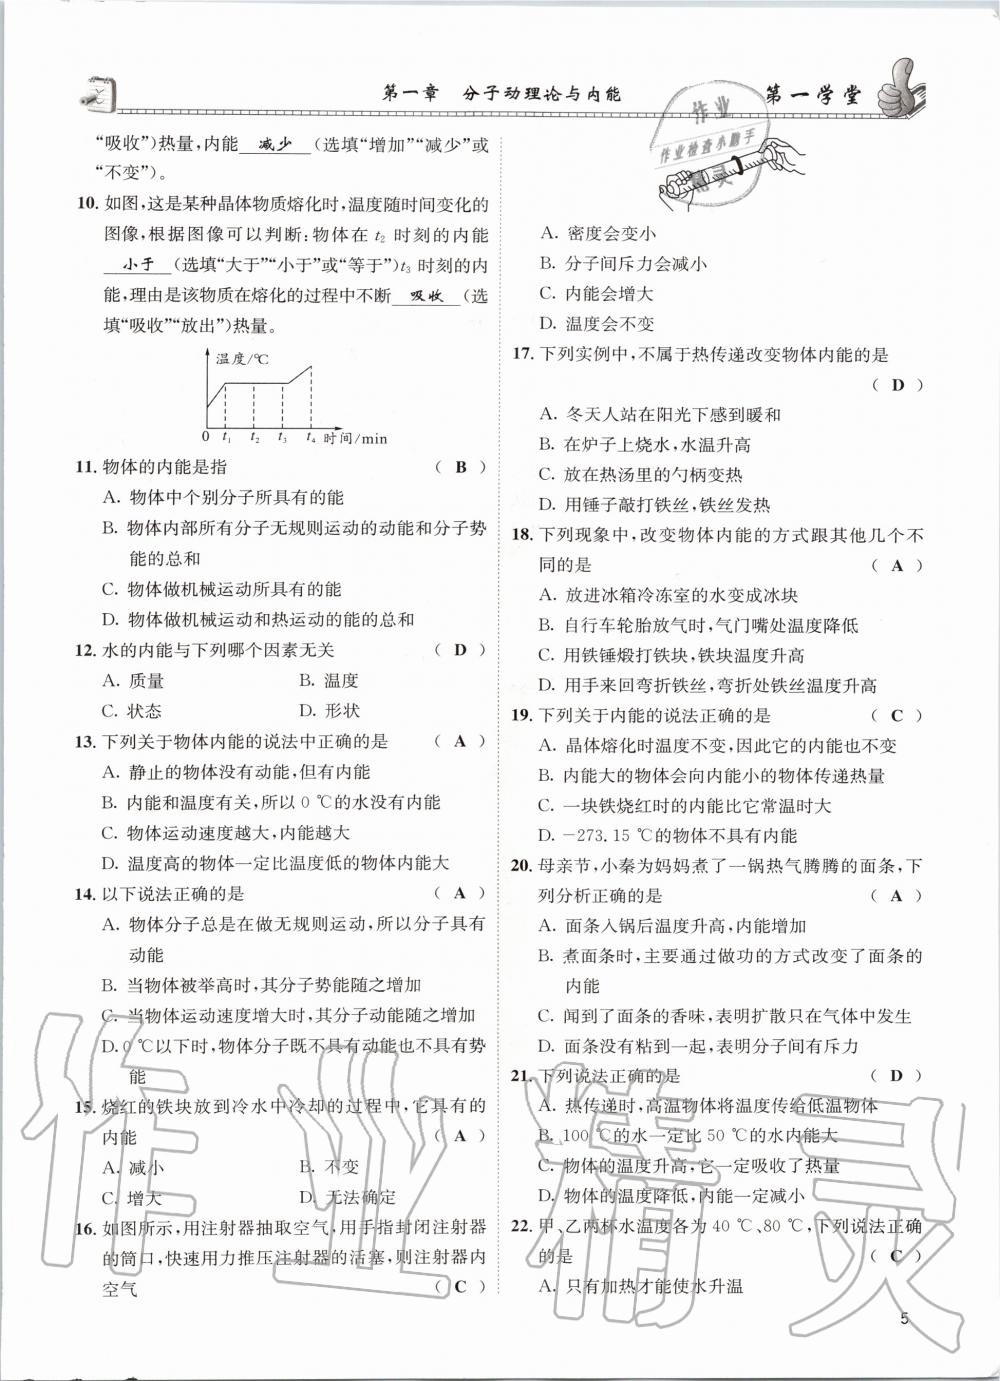 第一章 分子动理论与内能
第一学堂
“吸收”)热量,内能 减少 (选填“增加”“减少”或
“不变”)。
10. 如图,这是某种晶体物质熔化时,温度随时间变化的
图像,根据图像可以判断:物体在 t₂ 时刻的内能
小于 (选填“大于”“小于”或“等于”)t₃ 时刻的内
能,理由是该物质在熔化的过程中不断 吸收 (选
填“吸收”“放出”)热量。
温度/℃
0 t₁ t₂ t₃ t₄ 时间/min
11. 物体的内能是指 ( B )
A. 物体中个别分子所具有的能
B. 物体内部所有分子无规则运动的动能和分子势
能的总和
C. 物体做机械运动所具有的能
D. 物体做机械运动和热运动的能的总和
12. 水的内能与下列哪个因素无关 ( D )
A. 质量 B. 温度
C. 状态 D. 形状
13. 下列关于物体内能的说法中正确的是 ( A )
A. 静止的物体没有动能,但有内能
B. 内能和温度有关,所以 0 ℃的水没有内能
C. 物体运动速度越大,内能越大
D. 温度高的物体一定比温度低的物体内能大
14. 以下说法正确的是 ( A )
A. 物体分子总是在做无规则运动,所以分子具有
动能
B. 当物体被举高时,其分子势能随之增加
C. 当物体运动速度增大时,其分子动能随之增加
D. 0 ℃以下时,物体分子既不具有动能也不具有势
能
15. 烧红的铁块放到冷水中冷却的过程中,它具有的
内能 ( A )
A. 减小 B. 不变
C. 增大 D. 无法确定
16. 如图所示,用注射器抽取空气,用手指封闭注射器
的筒口,快速用力推压注射器的活塞,则注射器内
空气 ( C )
作业
作业检查小助手
精灵
A. 密度会变小
B. 分子间斥力会减小
C. 内能会增大
D. 温度会不变
17. 下列实例中,不属于热传递改变物体内能的是
( D )
A. 冬天人站在阳光下感到暖和
B. 在炉子上烧水,水温升高
C. 放在热汤里的勺柄变热
D. 用锤子敲打铁丝,铁丝发热
18. 下列现象中,改变物体内能的方式跟其他几个不
同的是 ( A )
A. 放进冰箱冷冻室的水变成冰块
B. 自行车轮胎放气时,气门嘴处温度降低
C. 用铁锤煅打铁块,铁块温度升高
D. 用手来回弯折铁丝,弯折处铁丝温度升高
19. 下列关于内能的说法正确的是 ( C )
A. 晶体熔化时温度不变,因此它的内能也不变
B. 内能大的物体会向内能小的物体传递热量
C. 一块铁烧红时的内能比它常温时大
D. −273.15 ℃的物体不具有内能
20. 母亲节,小秦为妈妈煮了一锅热气腾腾的面条,下
列分析正确的是 ( A )
A. 面条入锅后温度升高,内能增加
B. 煮面条时,主要通过做功的方式改变了面条的
内能
C. 闻到了面条的香味,表明扩散只在气体中发生
D. 面条没有粘到一起,表明分子间有斥力
21. 下列说法正确的是 ( D )
A. 热传递时,高温物体将温度传给低温物体
B. 100 ℃的水一定比 50 ℃的水内能大
C. 物体的温度升高,它一定吸收了热量
D. 物体的温度降低,内能一定减小
22. 甲、乙两杯水温度各为 40 ℃、80 ℃,下列说法正确
的是 ( C )
A. 只有加热才能使水升温
5
作业精灵